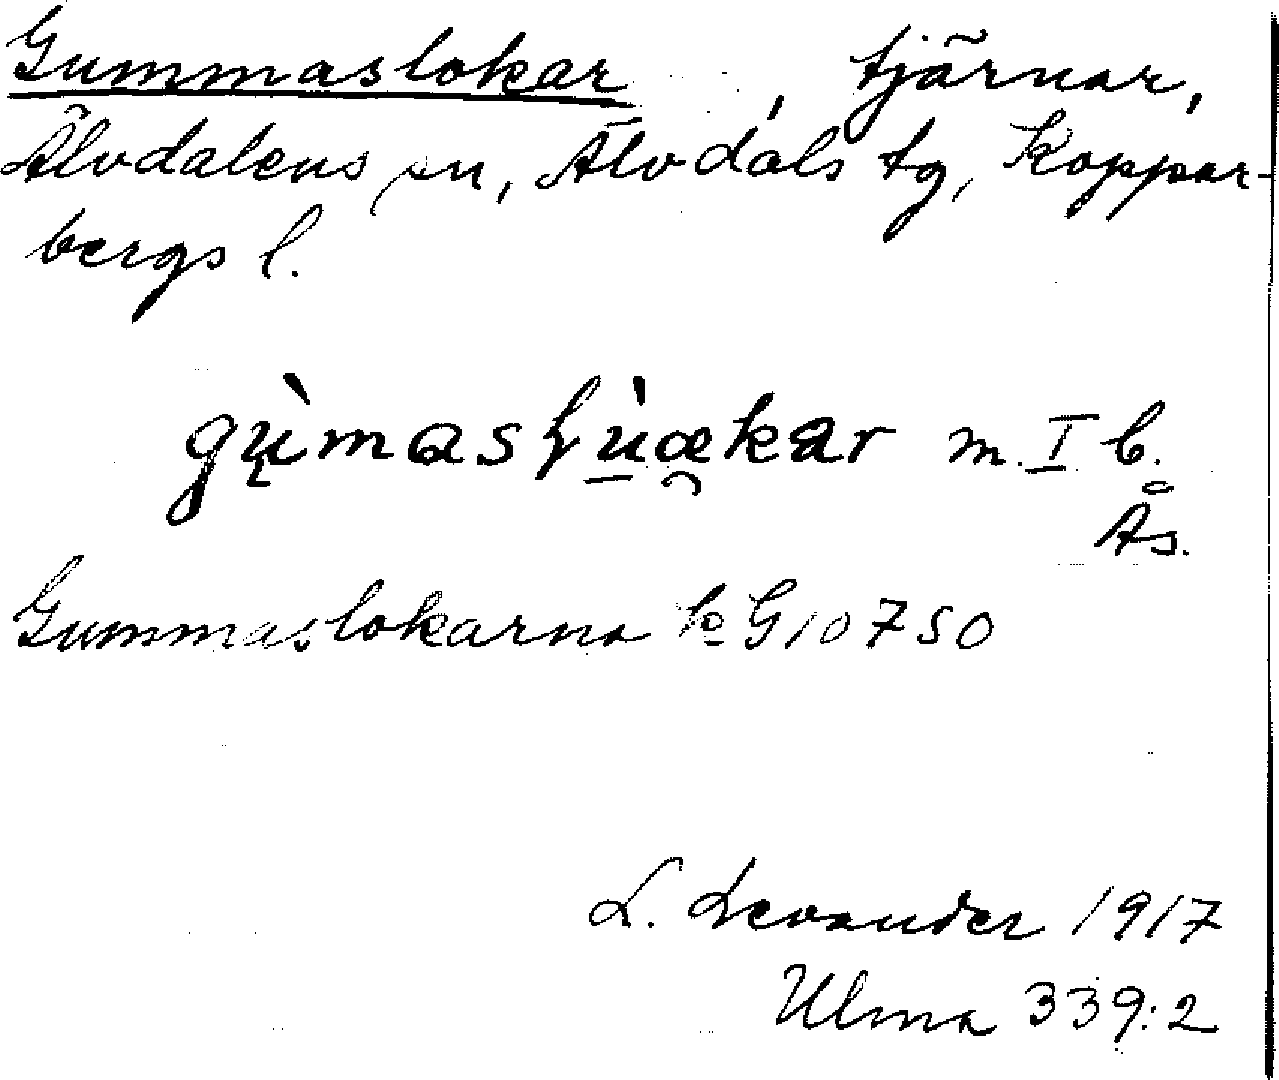 Gummaslokar, tjärnar,
Älvdalens sn, Älvdals tg, Koppar-
bergs l.
gų̀masɫù̠æ̯kar m. I b.
Ås.
Gummaslokarna k G10750
L. Levander 1917
Ulma 339:2